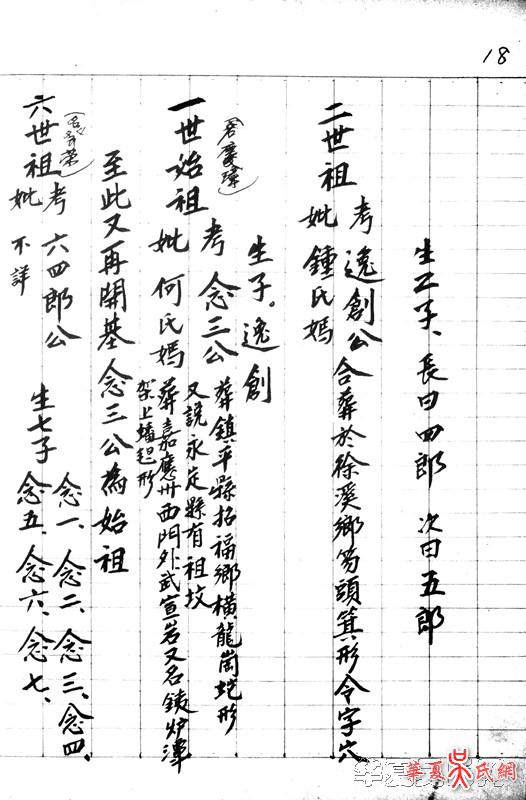 18
六世祖
考 六四郎公
妣 不詳
生七子
念一、念二、念三、念四、
念五、念六、念七、
至此又再開基念三公為始祖
一世始祖
考 念三公
葬鎮平縣招福鄉橫龍崗蛇形
又說永定縣有祖坟
妣 何氏媽
葬嘉應州西門外武宣岩又名銕炉潭
架上蟠起形
生子。逸創
二世祖
考 逸創公
妣 鍾氏媽
合葬於徐溪鄉笏頭箕形令字穴
生二子、長曰四郎 次曰五郎
華夏吳氏網